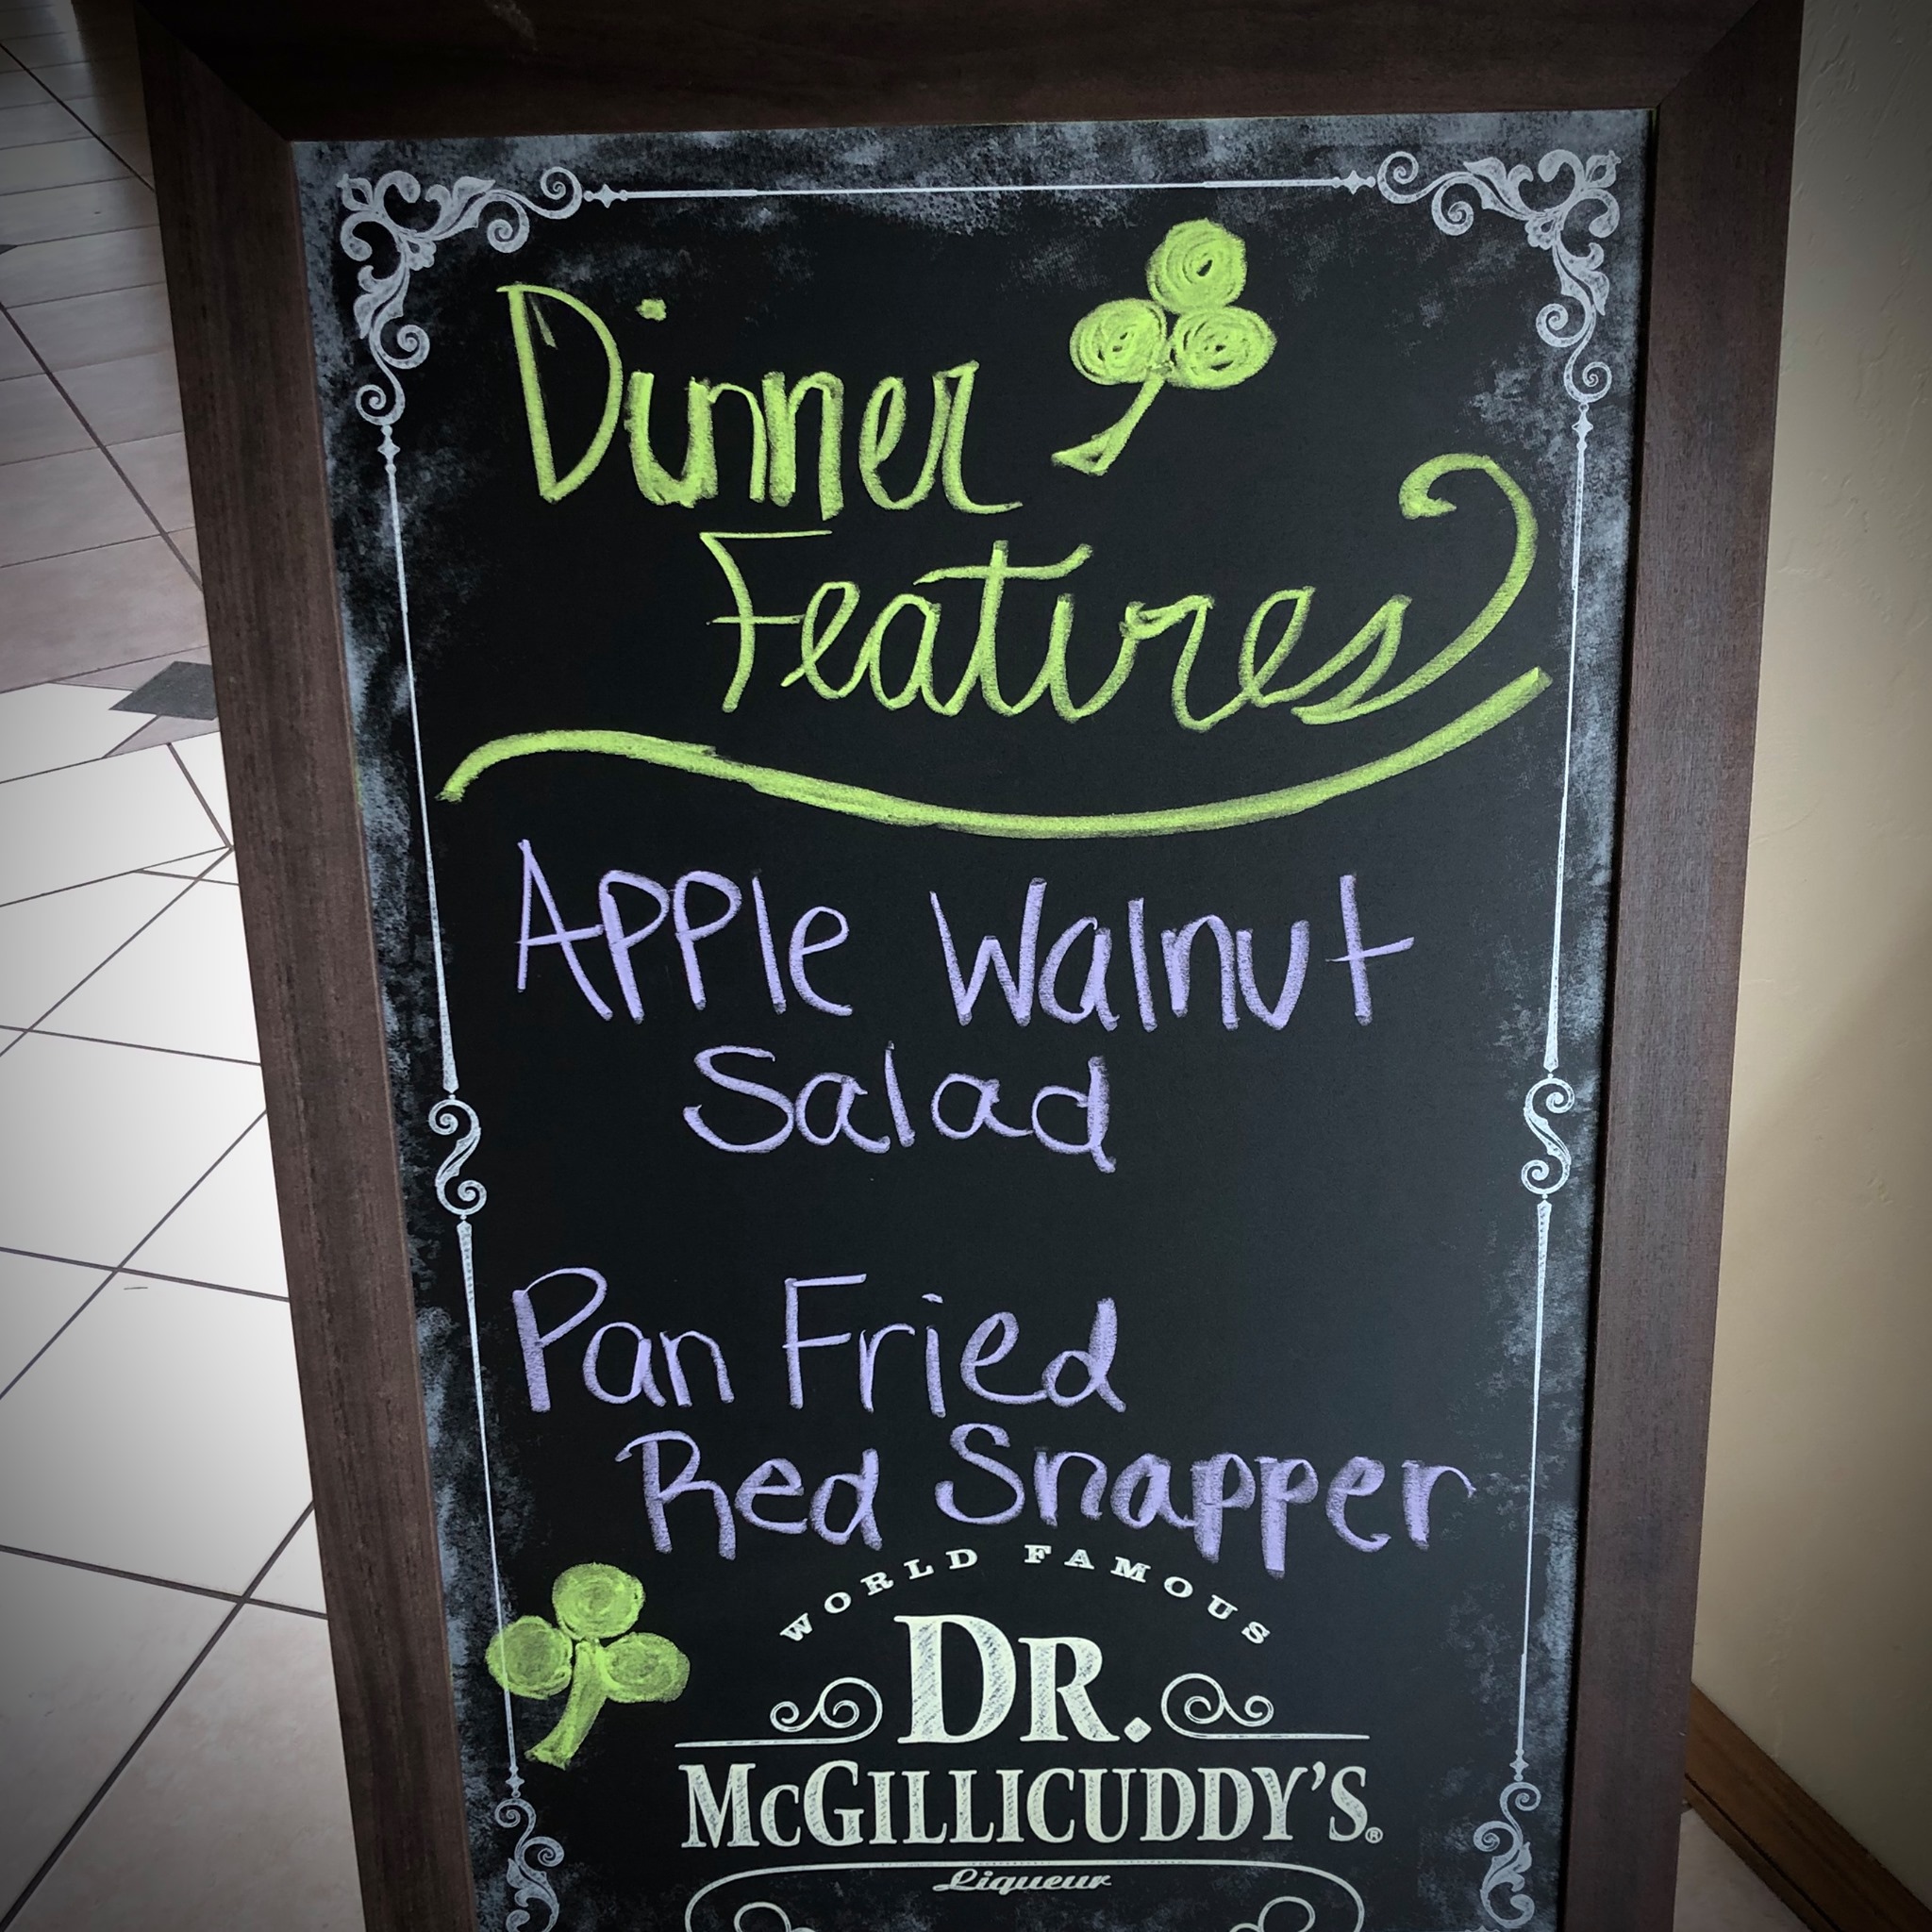 Dinner
Features
Apple Walnut
Salad
Pan Fried
Red Snapper
WORLD FAMOUS
DR.
McGILLICUDDY'S®
Liqueur